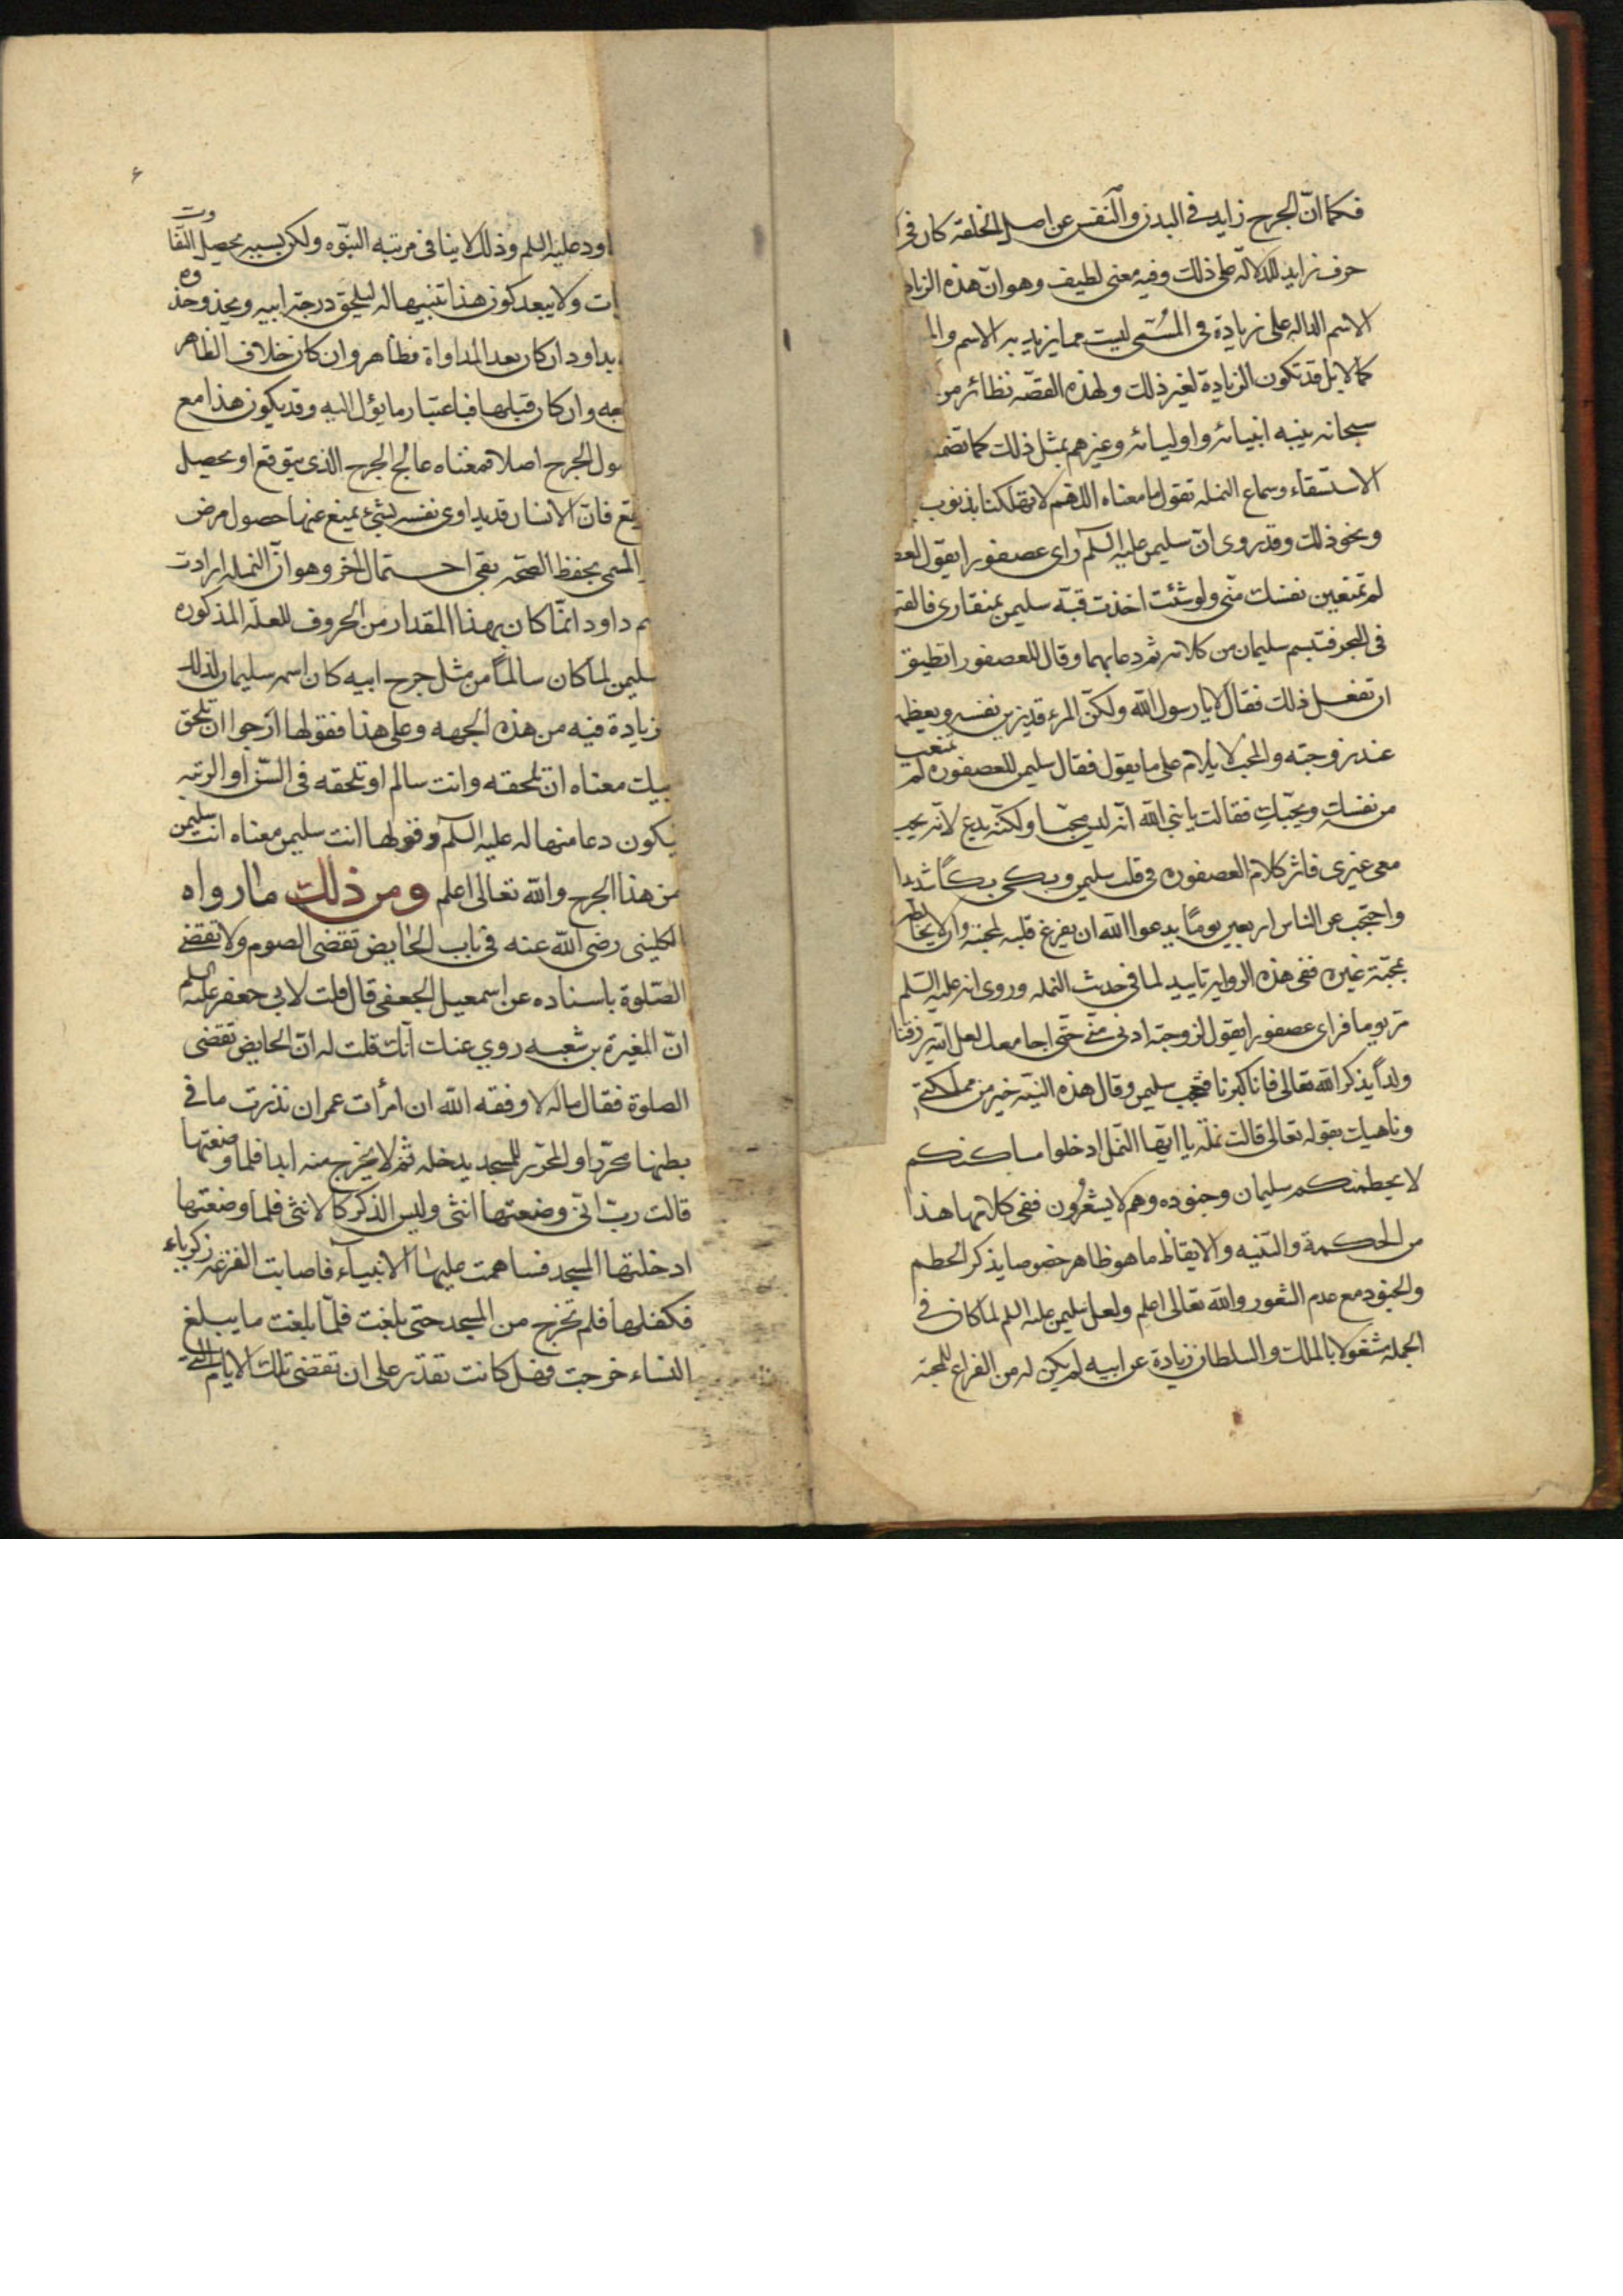 فكما انّ الجرح زايد في البدن والنفس عن اصل الخلقة كان في
حرف زايد للدلالة على ذلك وفيه معنى لطيف وهو ان هذه الزياد
الاسم الداله على زيادة في المسمّى ليست مما يزيد به الاسم و
كمالا بل قد تكون الزيادة لغير ذلك ولهذه القصّه نظائر من
سبحانه ينبه انبيائه واوليائه وغيرهم بمثل ذلك كما تضمن
الاستسقاء وسماع النمله تقول ما معناه اللهم لا تهلكنا بذنوب
ونحو ذلك وقد روى ان سليمن عليه السلم راى عصفورا يقول لعص
لم تمنعين نفسك منّى ولو شئت اخذت قبّه سليمن بمنقارى فالقي
في البحر فتبسم سليمان من كلامه ثم دعا بهما وقال للعصفور اتطيق
ان تفعل ذلك فقال لا يا رسول الله ولكنّ المرء قد يزين نفسه ويعظم
عند زوجته والمحب لا يلام على ما يقول فقال سليمن للعصفوره لم تمنعيه
من نفسك ويحبّك فقالت يا نبي الله انّه ليس محبّا ولكنّه يدع لانّه يحب
معى غيرى فاثر كلام العصفوره في قلب سليمن وبكى بكاً شديدا
واحتجب عن الناس اربعين يومًا يدعوا الله ان يفرغ قلبه لمحبته وان لا يخالطه
بمحبّة غيره ففي هذه الروايه تاييد لما في حدث النمله وروى انه عليه السّلم
مر يوما فراى عصفورا يقول لزوجته ادنى منّي حتّى اجامعك لعل الله يرزقنا
ولداً يذكر الله تعالى فانا كبرنا فتعجب سليمن وقال هذه النيّه خير من مملكتي
وناهيك بقوله تعالى قالت نملة يا ايّها النّمل ادخلوا مساكنكم
لا يحطمنكم سليمان وجنوده وهم لا يشعرون ففي كلامها هذا
من الحكمة والتّنبيه والايقاظ ما هو ظاهر خصوصا بذكر الحطم
والجنود مع عدم الشعور والله تعالى اعلم ولعل سليمن عليه السلم لما كان في
الجمله مشغولا بالملك والسلطان زيادة عن ابيه لم يكن له من الفراغ للمحبّة
٤
داود عليه السلم وذلك لا ينافي مرتبه النبّوه ولكن بسببه يحصل التّفاوت
ات ولا يبعد كون هذا تنبيها له ليلحق درجة ابيه ويحذو حذوه
بداود ان كان بعد المداواة فظاهر وان كان خلاف الظاهر
جه وان كان قبلها فباعتبار ما يؤل اليه وقد يكون هذا مع
سول الجرح اصلا فمعناه عالج الجرح الذى يتوقع او يحصل
قع فانّ الانسان قد يداوى نفسه بشيء يمنع عنها حصول مرض
المسمى بحفظ الصّحه بقى احتمال اخر وهو انّ النمله ارادت
م داود انمّا كان بهذا المقدار من الحروف للعلّه المذكوره
سليمن لما كان سالماً من مثل جرح ابيه كان اسمه سليمان لذلك
زيادة فيه من هذه الجهه وعلى هذا فقولها ارجوا ان تلحق
بيك معناه ان تلحقه وانت سالم او تلحقه في السّن او الرتبه
يكون دعا منها له عليه السلم وقولها انت سليمن معناه انت سليمن
من هذا الجرح والله تعالى اعلم ومن ذلك ما رواه
لكلينى رضى الله عنه في باب الحايض تقضى الصوم ولا تقضى
الصّلوة باسناده عن اسمعيل الجعفى قال قلت لابي جعفر عليه السلم
انّ المغيرة بن شعبه روي عنك انّك قلت له انّ الحايض تقضى
الصلوة فقال ماله لا وفقه الله ان امرأت عمران نذرت ما في
بطنها محرّرا والمحرّر للمسجد يدخله ثم لا يخرج منه ابدا فلما وضعتها
قالت ربّ انّى وضعتها انثى وليس الذكر كالانثى فلما وضعتها
ادخلتها المسجد فساهمت عليها الانبياء فاصابت القرعه زكرياء
فكفلها فلم تخرج من المسجد حتى بلغت فلمّا بلغت ما يبلغ
النساء خرجت فهل كانت تقدر على ان تقضى تلك الايام التي